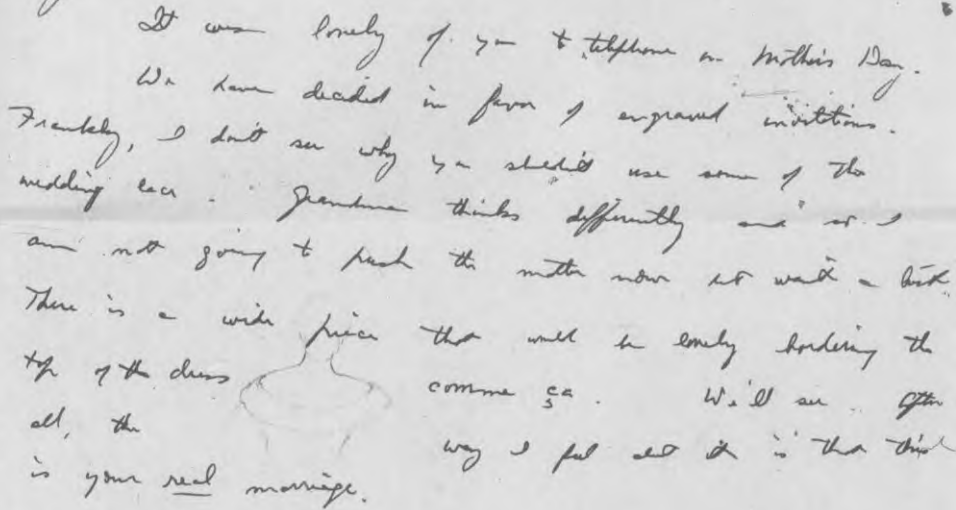 It was lovely of you to telephone on Mother's Day.
We have decided in favor of engraved invitations.
Frankly, I don't see why you shouldn't use some of the
wedding lace. Grandma thinks differently and so I
am not going to push the matter now but wait a bit.
There is a wide piece that would be lovely bordering the
top of the dress comme ça. We'll see. After
all, the way I feel about it is that this
is your real marriage.